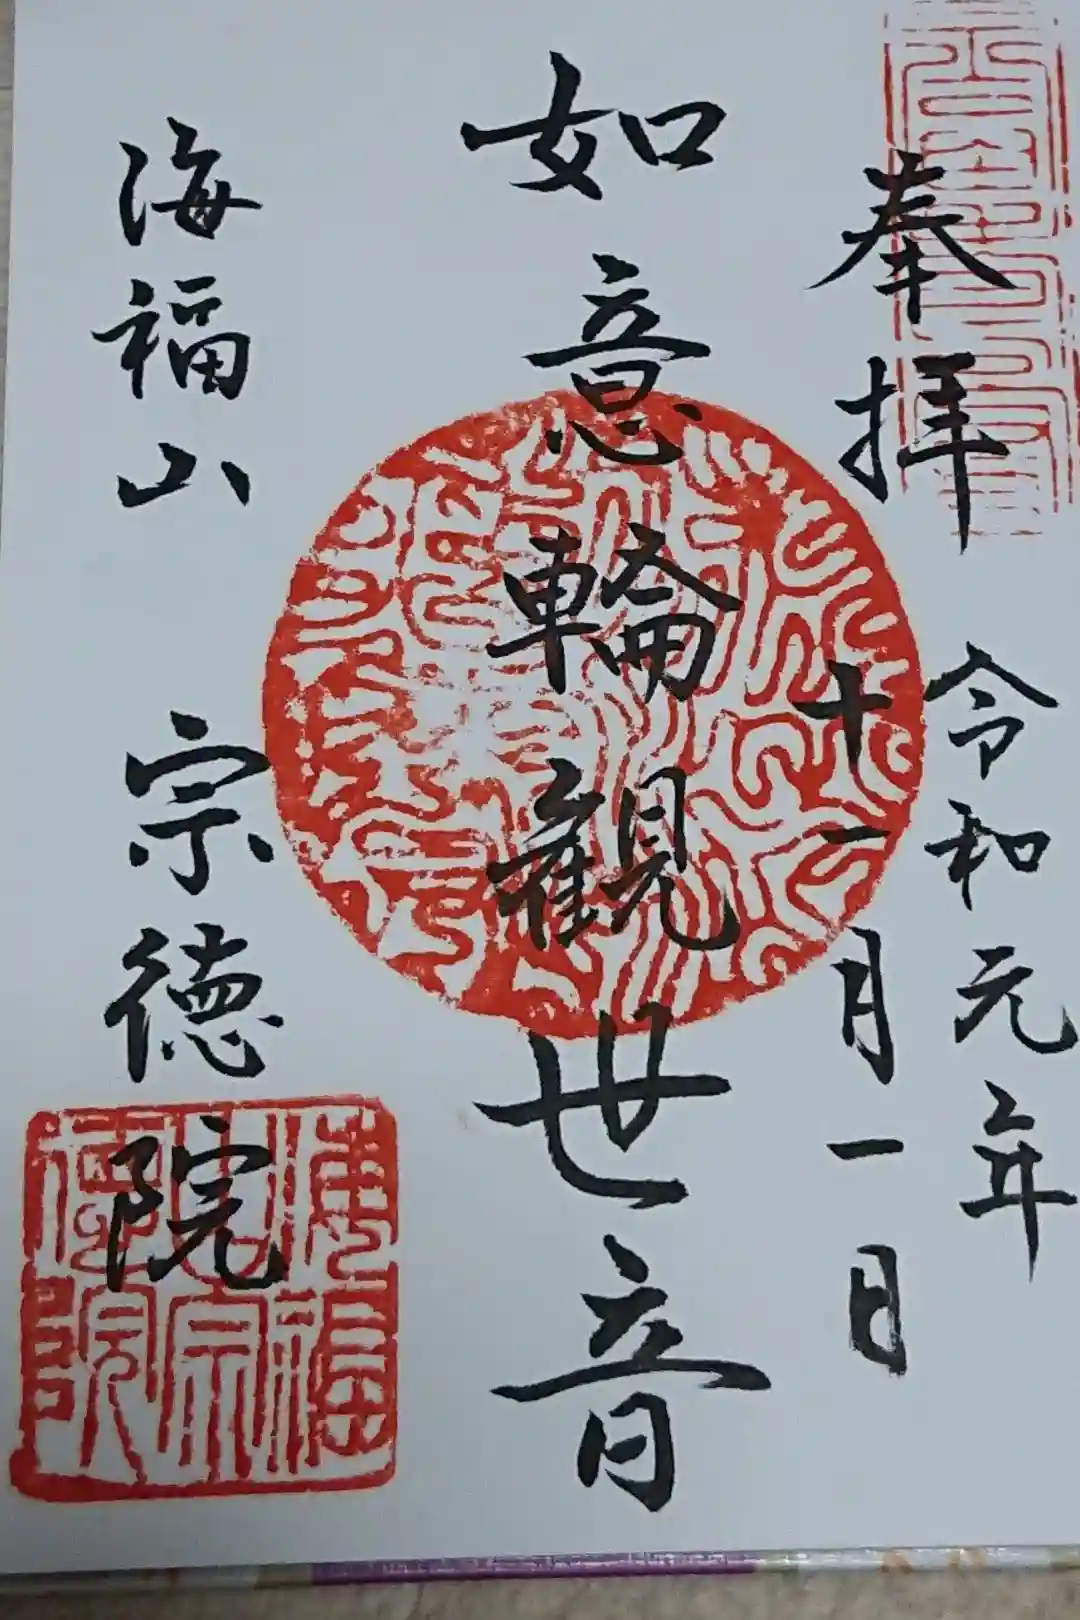 奉拝
令和元年
十一月一日
如意輪観世音
海福山 宗徳院
海福
山宗
徳院